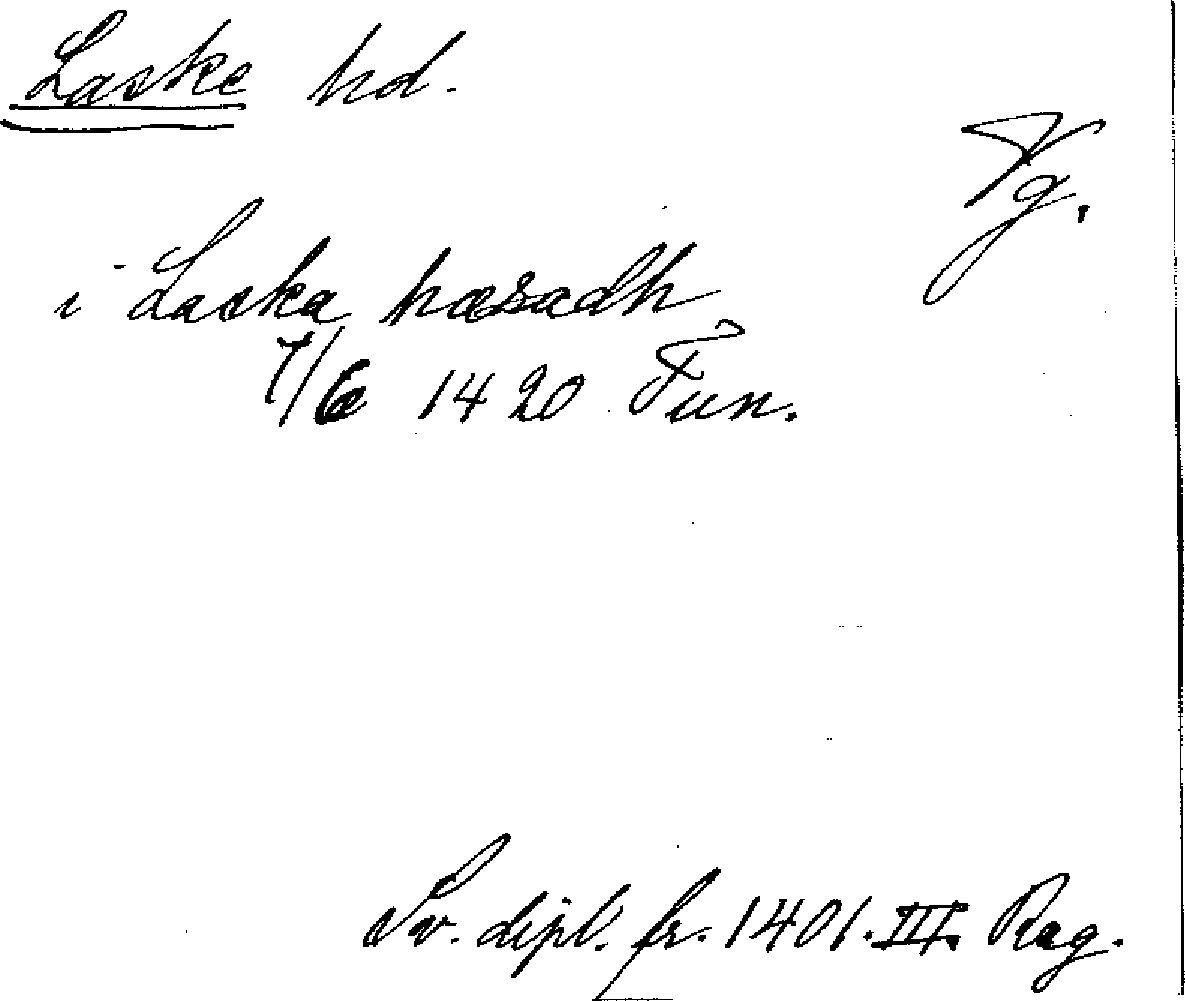 Laske hd.
Vg.
i Laska hæradh
7/6 1420 Fun.
Sv. dipl. fr. 1401. III. Reg.